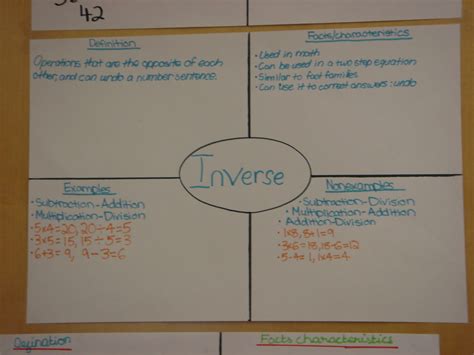 42
Definition
Operations that are the opposite of each
other, and can undo a number sentence.
Facts/characteristics
• Used in math
• Can be used in a two step equation
• Similar to fact families
• Can use it to correct answers: undo
Inverse
Examples
• Subtraction-Addition
• Multiplication-Division
• 5x4=20, 20÷4=5
• 3x5=15, 15÷5=3
• 6+3=9, 9-3=6
Nonexamples
• Subtraction-Division
• Multiplication-Addition
• Addition-Division
• 1x8, 8+1=9
• 3x6=18, 18-6=12
• 5-4=1, 1x4=4
Definition
Facts characteristics